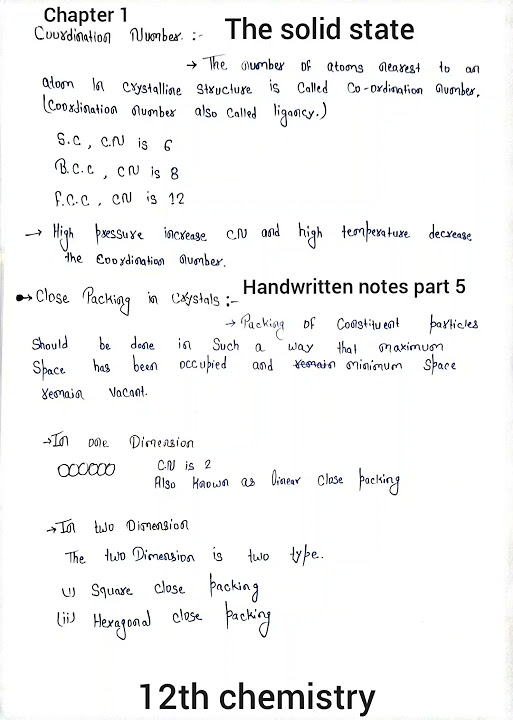 Chapter 1
The solid state
Coordination Number :-
→ The number of atoms nearest to an
atom in crystalline structure is called Co-ordination number.
(Coordination number also called ligancy.)
S.C, CN is 6
B.C.C, CN is 8
F.C.C, CN is 12
→ High pressure increase CN and high temperature decrease
the coordination number.
Handwritten notes part 5
→ Close Packing in Crystals :-
→ Packing of Constituent particles
should be done in such a way that maximum
space has been occupied and remain minimum space
remain vacant.
→ In one Dimension
CN is 2
Also known as linear close packing
→ In two Dimension
The two Dimension is two type.
(i) Square close packing
(ii) Hexagonal close packing
12th chemistry